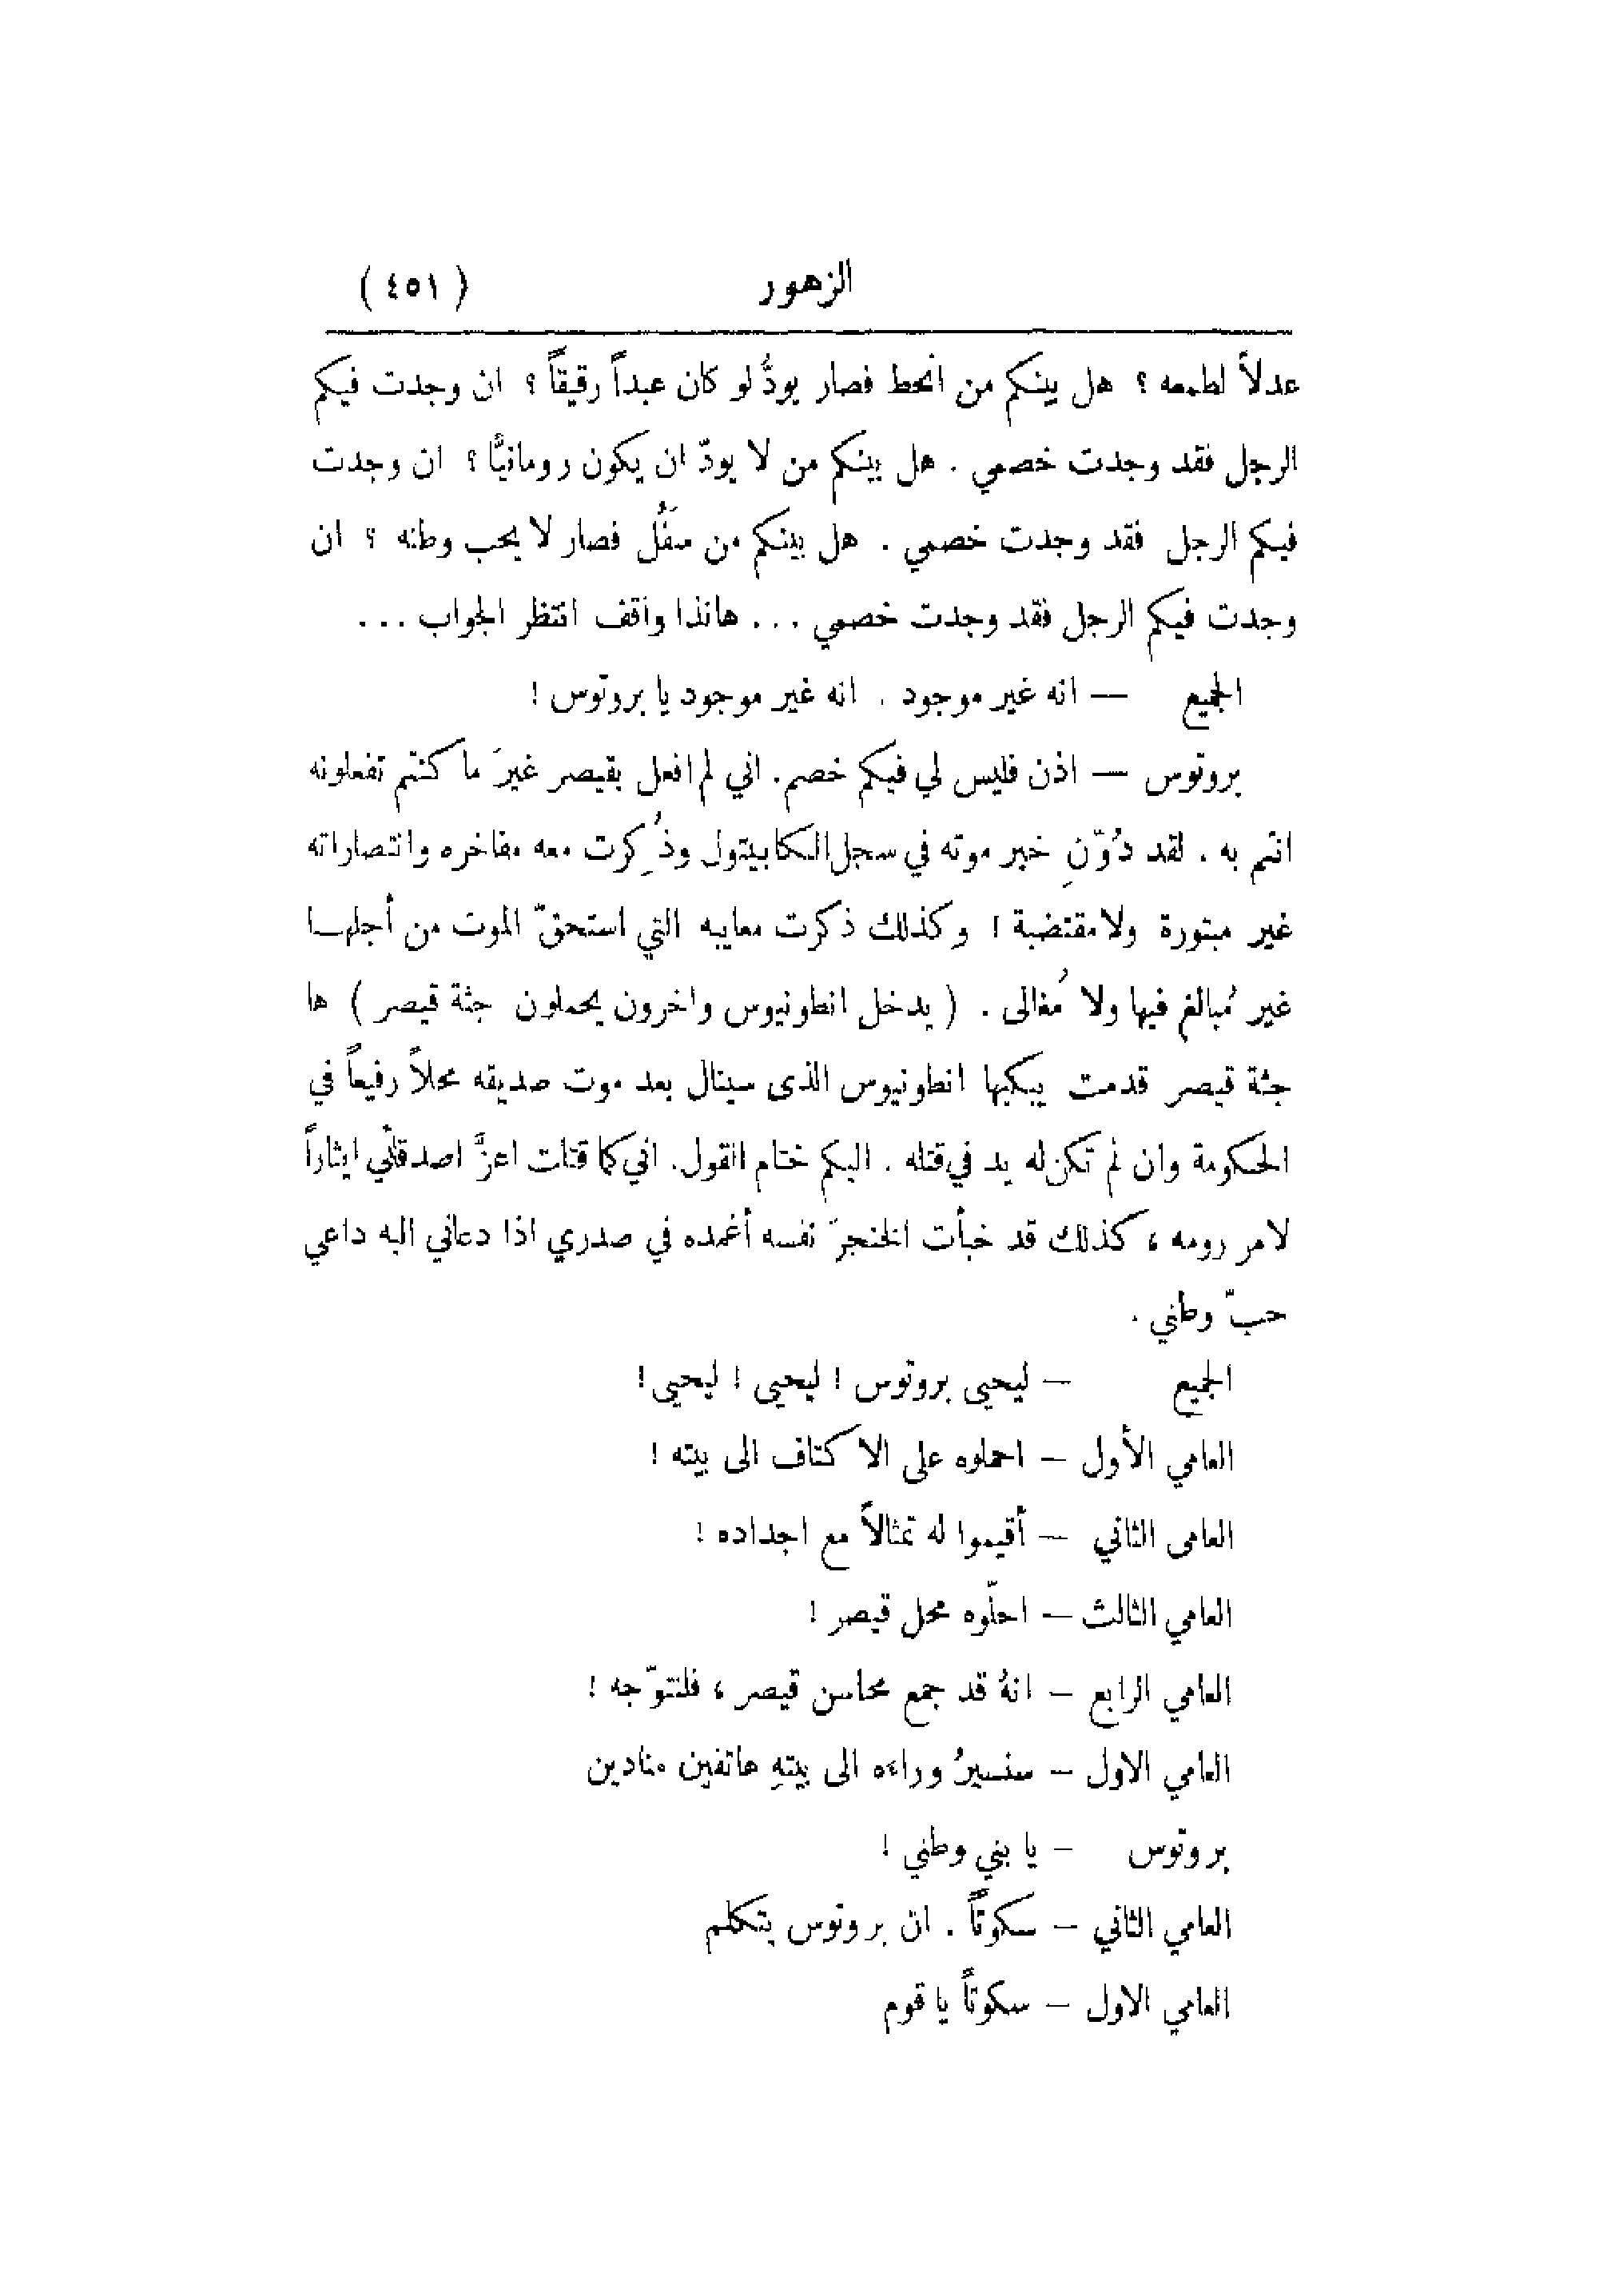 الزهور (٤٥١)
عدلاً لطمعه ؟ هل بينكم من انحط فصار يودُّ لو كان عبداً رقيقاً ؟ ان وجدت فيكم
الرجل فقد وجدت خصمي . هل بينكم من لا يودّ ان يكون رومانيًّا ؟ ان وجدت
فيكم الرجل فقد وجدت خصمي . هل بينكم من سَفُل فصار لا يحب وطنه ؟ ان
وجدت فيكم الرجل فقد وجدت خصمي ... هانذا واقف انتظر الجواب ...
الجميع — انه غير موجود . انه غير موجود يا بروتوس !
بروتوس — اذن فليس لي فيكم خصم . اني لم افعل بقيصر غيرَ ما كنتم تفعلونه
انتم به . لقد دُوّنِ خبر موته في سجل الكابيتول وذُكِرت معه مفاخره وانتصاراته
غير مبتورة ولا مقتضبة ! وكذلك ذكرت معايبه التي استحقّ الموت من أجلهـا
غير مُبالغ فيها ولا مُغالى . ( يدخل انطونيوس واخرون يحملون جثة قيصر ) ها
جثة قيصر قدمت يبكيها انطونيوس الذى سينال بعد موت صديقه محلاً رفيعاً في
الحكومة وان لم تكن له يد في قتله . اليكم ختام القول . اني كما قتلت اعزَّ اصدقائي ايثاراً
لامر رومه ، كذلك قد خبأت الخنجرَ نفسه أغمده في صدري اذا دعاني اليه داعي
حبّ وطني .
الجميع — ليحيى بروتوس ! ليحيى ! ليحيى !
العامي الأول — احملوه على الاكتاف الى بيته !
العامى الثاني — أقيموا له تمثالاً مع اجداده !
العامي الثالث — احلّوه محل قيصر !
العامي الرابع — انهُ قد جمع محاسن قيصر ، فلنتوّجه !
العامي الاول — سنسيرُ وراءه الى بيتهِ هاتفين منادين
بروتوس — يا بني وطني !
العامي الثاني — سكوتاً . ان بروتوس يتكلم
العامي الاول — سكوتاً يا قوم